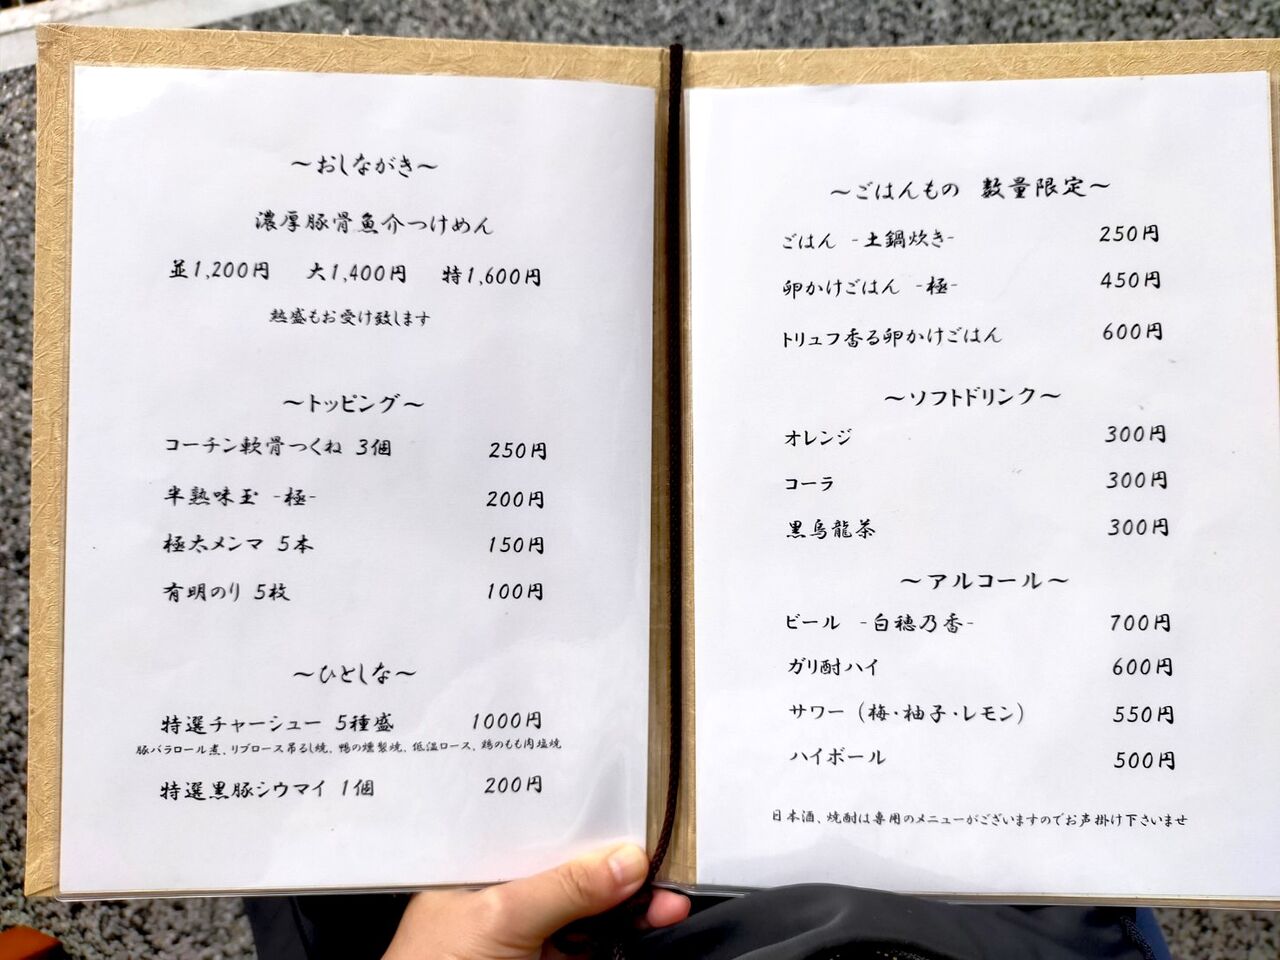 ～おしながき～
濃厚豚骨魚介つけめん
並1,200円 大1,400円 特1,600円
熱盛もお受け致します
～トッピング～
コーチン軟骨つくね 3個 250円
半熟味玉 -極- 200円
極太メンマ 5本 150円
有明のり 5枚 100円
～ひとしな～
特選チャーシュー 5種盛 1000円
豚バラロール煮、リブロース吊るし焼、鴨の燻製焼、低温ロース、鶏のもも肉塩焼
特選黒豚シウマイ 1個 200円
～ごはんもの 数量限定～
ごはん -土鍋炊き- 250円
卵かけごはん -極- 450円
トリュフ香る卵かけごはん 600円
～ソフトドリンク～
オレンジ 300円
コーラ 300円
黒烏龍茶 300円
～アルコール～
ビール -白穂乃香- 700円
ガリ酎ハイ 600円
サワー（梅・柚子・レモン） 550円
ハイボール 500円
日本酒、焼酎は専用のメニューがございますのでお声掛け下さいませ